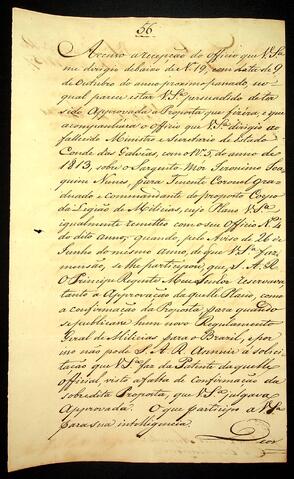 56
Accuso a recepção do Officio que V. Sa
me dirigio debaixo de N. 19, com data de 9
de Outubro do anno proximo passado, no
qual parece estar V. Sa persuadido de ter
sido Approvada a Proposta que fizera, e que
acompanhára o Officio que V. Sa dirigio ao
fallecido Ministro e Secretario de Estado
Conde das Galvêas, com N. 5, do anno de
1813, sobre o Sargento Mór Jeronimo Joa
quim Nunes, para Tenente Coronel gra
duado e commandante do proposto Corpo
da Legião de Milicias, cujo Plano V. Sa
igualmente remetteo com o seu Officio N. 4
do dito anno; quando, pelo Aviso de 26 de
Junho do mesmo anno, de que V. Sa faz
menção, se lhe participou, que, S. A. R.
O Principe Regente Meu Senhor reservava
tanto a Approvação daquelle Plano, como
a confirmação da Proposta, para quando
se publicáre hum novo Regulamento
Geral de Milicias para o Brazil, e por
isso não pode S. A. R. Annuir á solici
tação que V. Sa faz da Patente daquelle
official, vista a falta de Confirmação da
sobredita Proposta, que V. Sa julgava
Approvada. O que participo a V. Sa
para sua intelligencia.
Deos